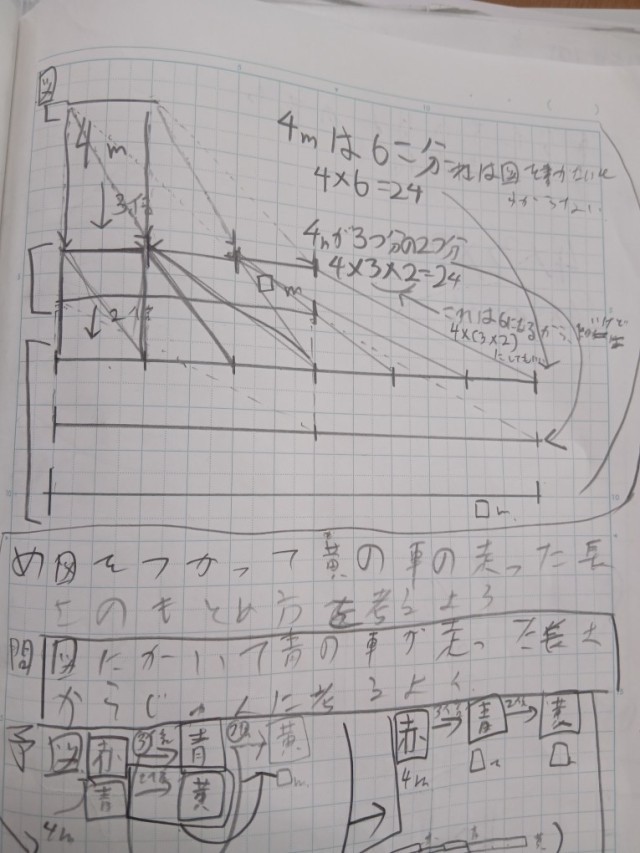 図
4m
4mは6こ分
4×6=24
これは図をかかないと
3倍
4mが3つ分の2つ分
4×3×2=24
□m
2倍
これは6になるから
4×(3×2)
にしても
□m
め 図をつかって黄の車の走った長
さのもとめ方を考えよう
問 図にかいて青の車が走った長さ
からじゅんに考えるよ
予 図 赤 3倍 青 2倍 黄
□m
青 2倍 黄
4m
赤 3倍 青 2倍 黄
4m □m □